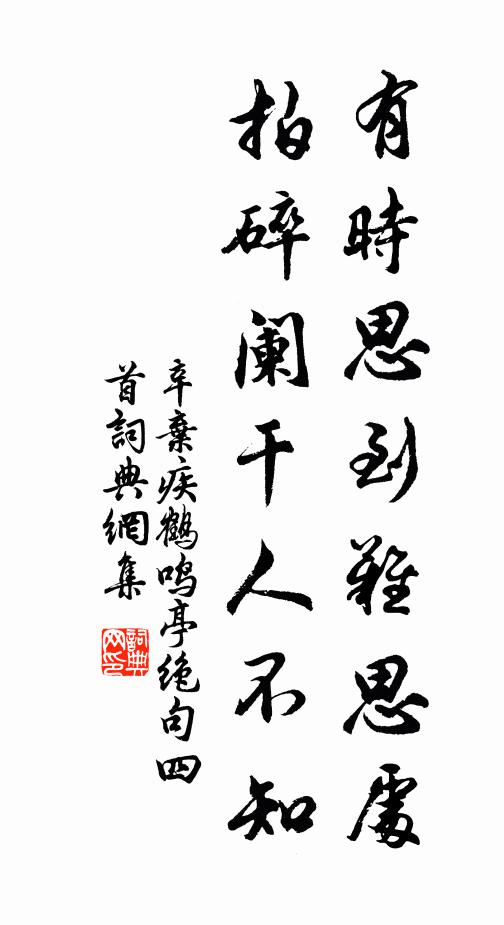 有時思到難思處
拍碎阑干人不知
辛棄疾鶴鸣亭绝句四
首詞典網集
詞典
网印